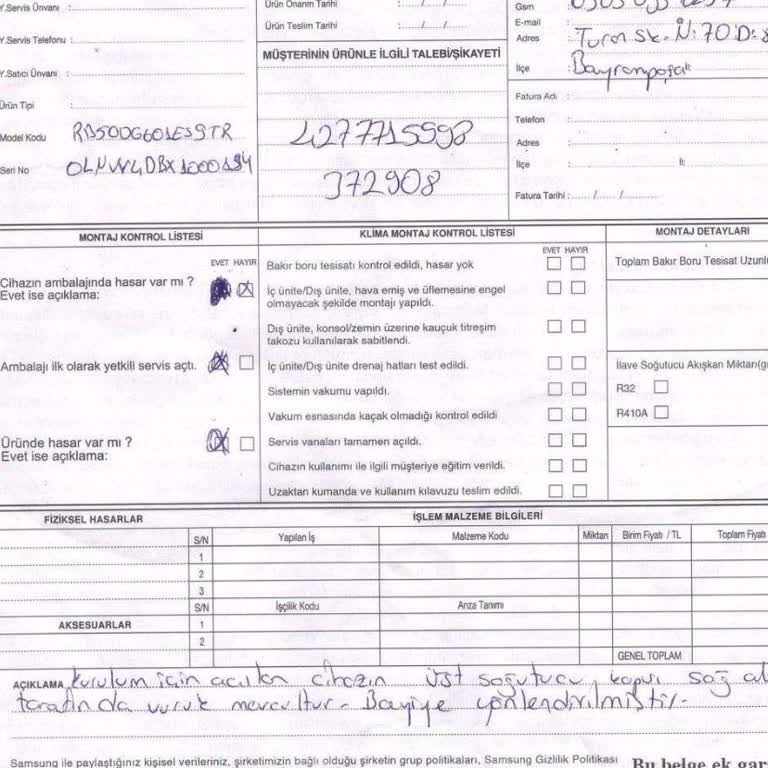 Y.Servis Ünvanı :
Y.Servis Telefonu :
Y.Satıcı Ünvanı :
Ürün Tipi :
Model Kodu : RB50DG601ES9TR
Seri No :
Ürün Onarım Tarihi : / /
Ürün Teslim Tarihi : / /
MÜŞTERİNİN ÜRÜNLE İLGİLİ TALEBİ/ŞİKAYETİ
4277715998
372908
Gsm :
E-mail :
Adres : sk. N:70 D:8
İlçe : Bayrampaşa
Fatura Adı :
Telefon :
Adres :
İlçe : İl:
Fatura Tarihi : / /
MONTAJ KONTROL LİSTESİ
EVET HAYIR
Cihazın ambalajında hasar var mı ?
Evet ise açıklama:
Ambalajı ilk olarak yetkili servis açtı.
Üründe hasar var mı ?
Evet ise açıklama:
KLİMA MONTAJ KONTROL LİSTESİ
EVET HAYIR
Bakır boru tesisatı kontrol edildi, hasar yok
İç ünite/Dış ünite, hava emiş ve üflemesine engel
olmayacak şekilde montajı yapıldı.
Dış ünite, konsol/zemin üzerine kauçuk titreşim
takozu kullanılarak sabitlendi.
İç ünite/Dış ünite drenaj hatları test edildi.
Sistemin vakumu yapıldı.
Vakum esnasında kaçak olmadığı kontrol edildi
Servis vanaları tamamen açıldı.
Cihazın kullanımı ile ilgili müşteriye eğitim verildi.
Uzaktan kumanda ve kullanım kılavuzu teslim edildi.
MONTAJ DETAYLARI
Toplam Bakır Boru Tesisat Uzunl
İlave Soğutucu Akışkan Miktarı(g
R32
R410A
FİZİKSEL HASARLAR
İŞLEM MALZEME BİLGİLERİ
S/N Yapılan İş Malzeme Kodu Miktarı Birim Fiyatı / TL Toplam Fiyatı
1
2
3
S/N İşçilik Kodu Arıza Tanımı
AKSESUARLAR 1
2
GENEL TOPLAM
AÇIKLAMA kurulum için açılan cihazın üst soğutucu kapı sağ al
tarafında vuruk mevcuttur. Bayiye yönlendirilmiştir.
Samsung ile paylaştığınız kişisel verileriniz, şirketimizin bağlı olduğu şirketin grup politikaları, Samsung Gizlilik Politikası
Bu belge ek gar